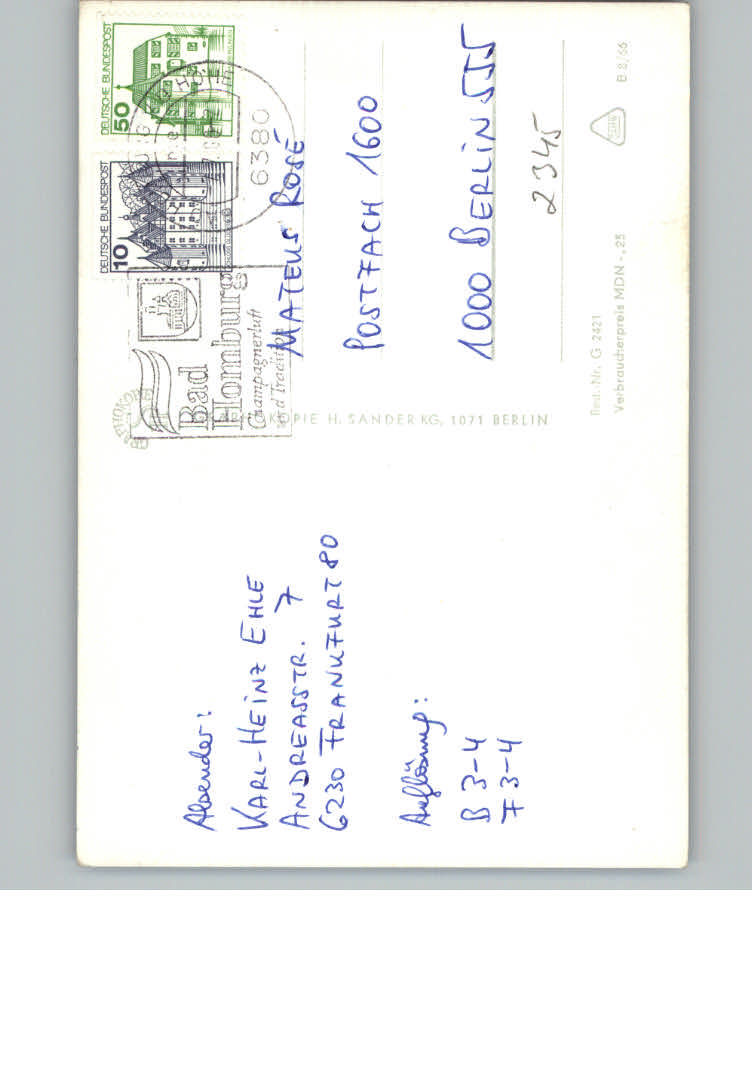 Absender:
KARL-HEINZ EHLE
ANDREASSTR. 7
6230 FRANKFURT 80
Auflösung:
B 3-4
F 3-4
DEUTSCHE BUNDESPOST
50
DEUTSCHE BUNDESPOST
10
6380
Bad
Homburg
Champagnerluft
und Tradition
MATEUS ROSÉ
POSTFACH 1600
1000 BERLIN 555
2345
KOPIE H. SANDER KG, 1071 BERLIN
Best.-Nr. G 2421
Verbraucherpreis MDN -,25
B 8/66